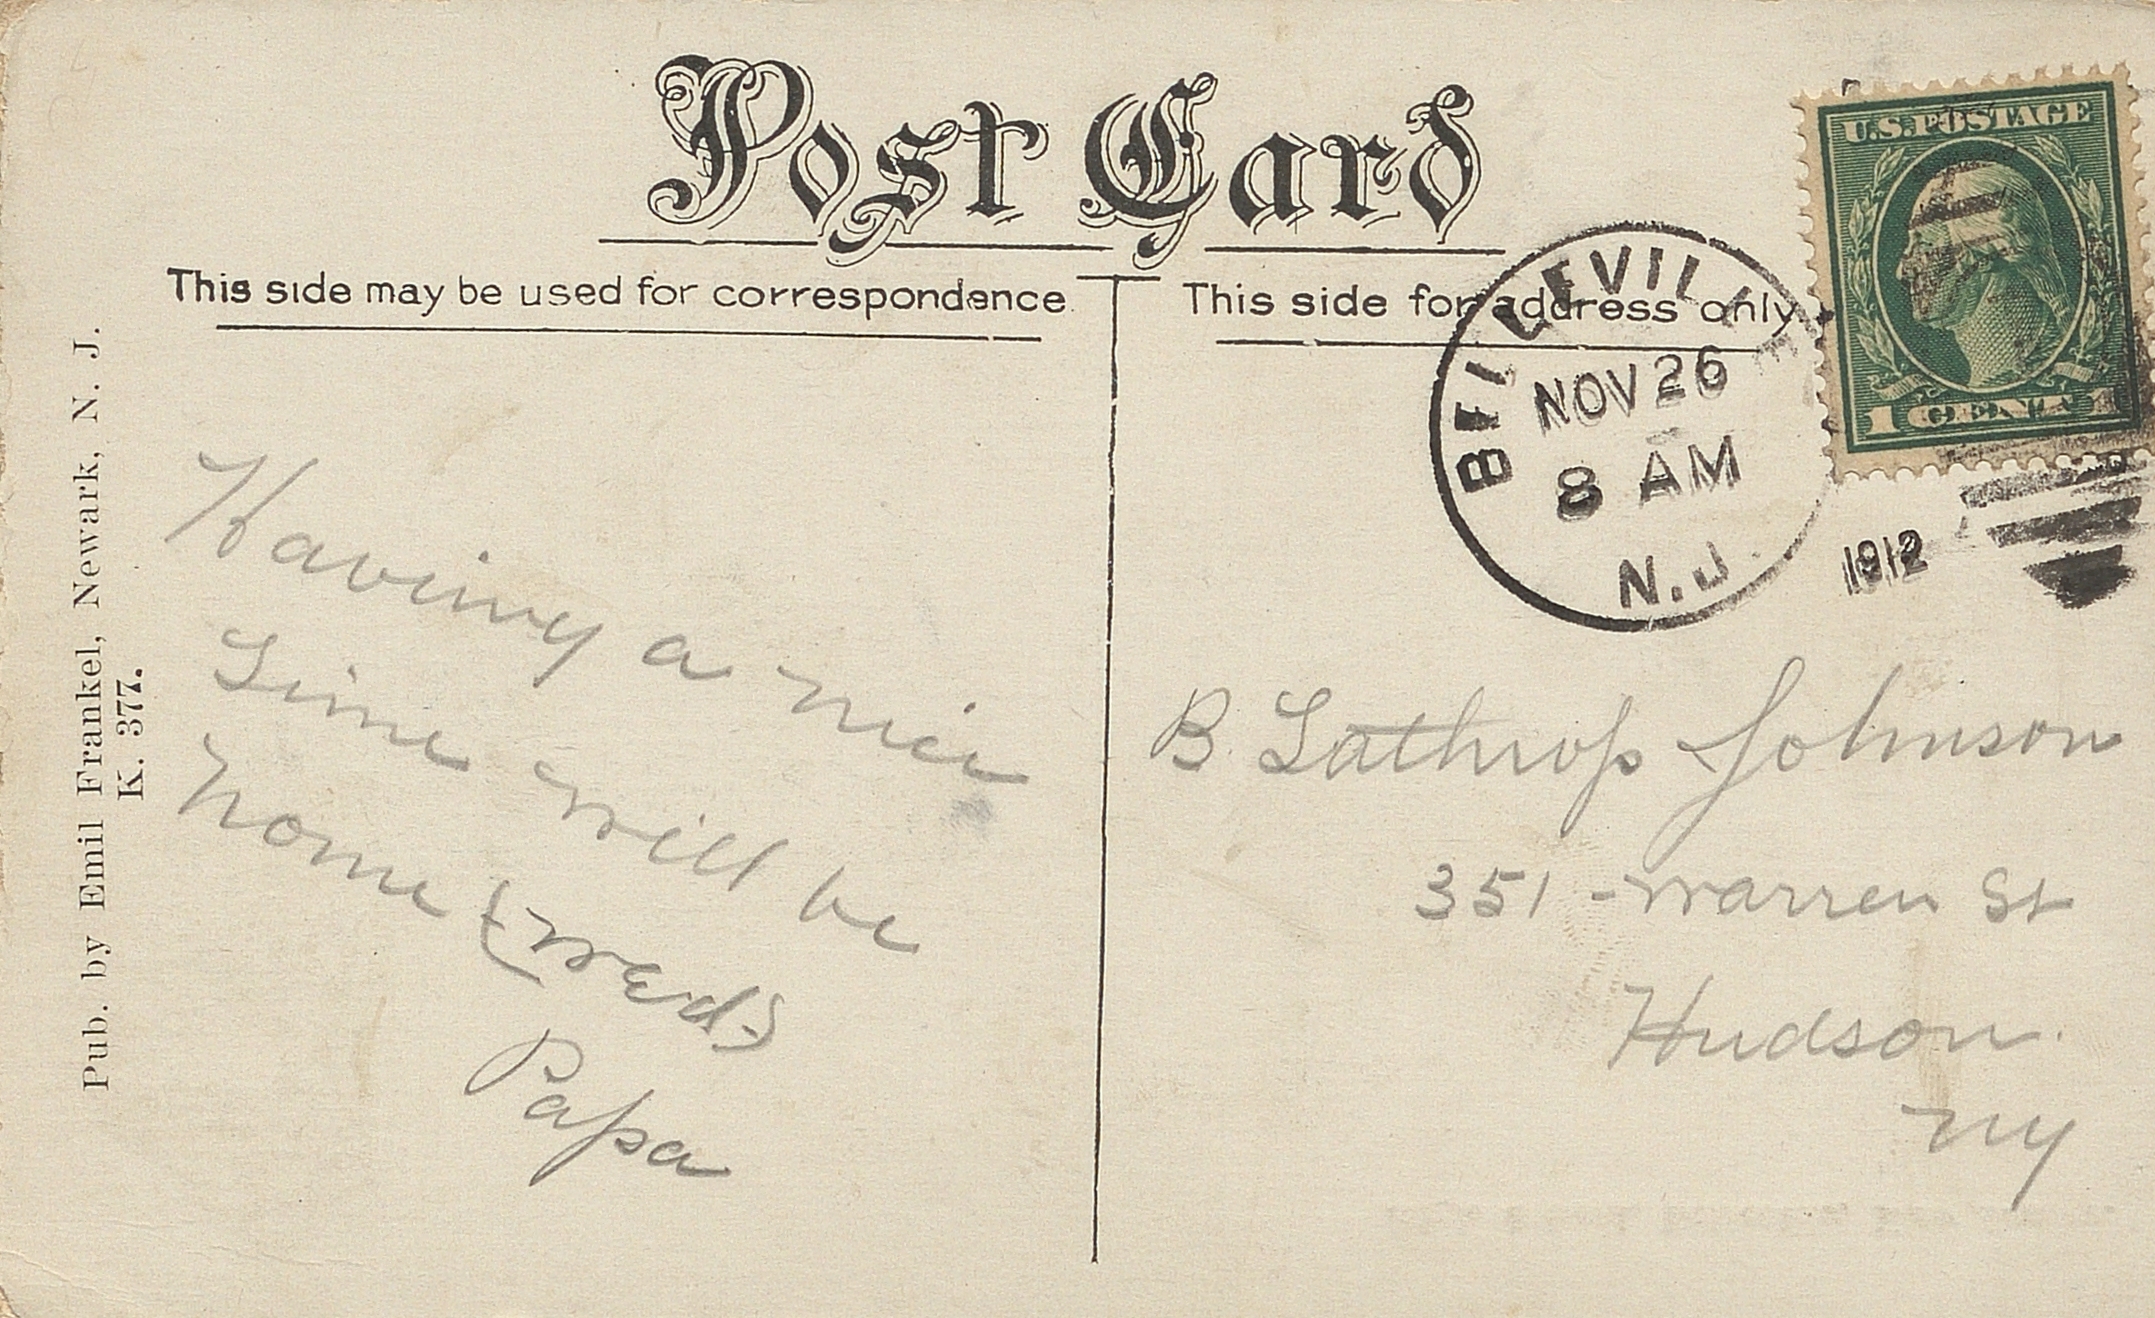 Post Card
This side may be used for correspondence.
This side for address only.
U.S. POSTAGE
1 CENT 1
BELLEVILLE
NOV 26
8 AM
N.J.
1912
Pub. by Emil Frankel, Newark, N. J.
K. 377.
Having a nice
Time will be
home Weds
Papa
B. Lathrop Johnson
351 - Warren St
Hudson.
NY